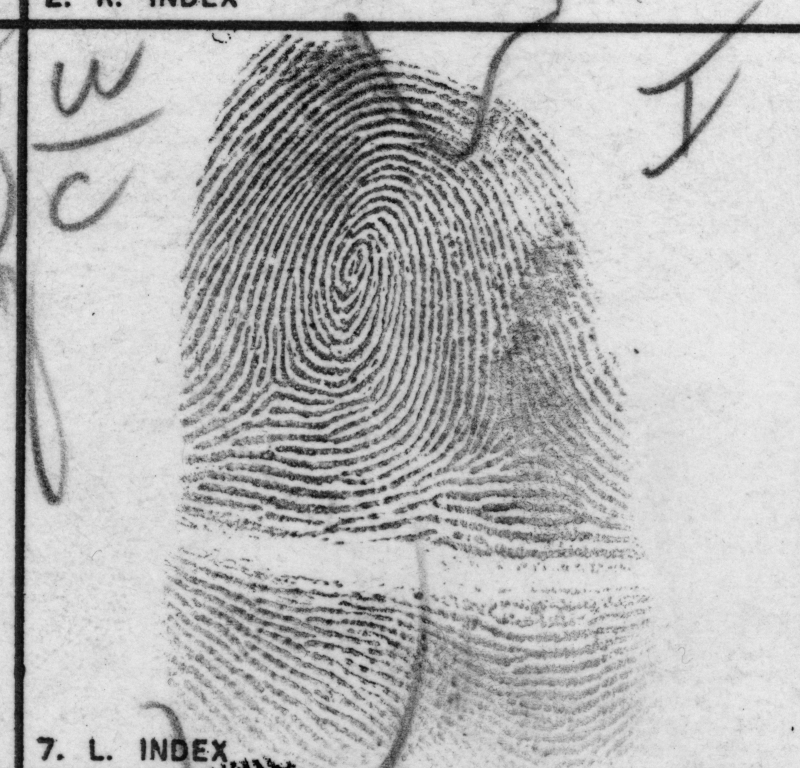 2. R. INDEX
W
C
I
7. L. INDEX